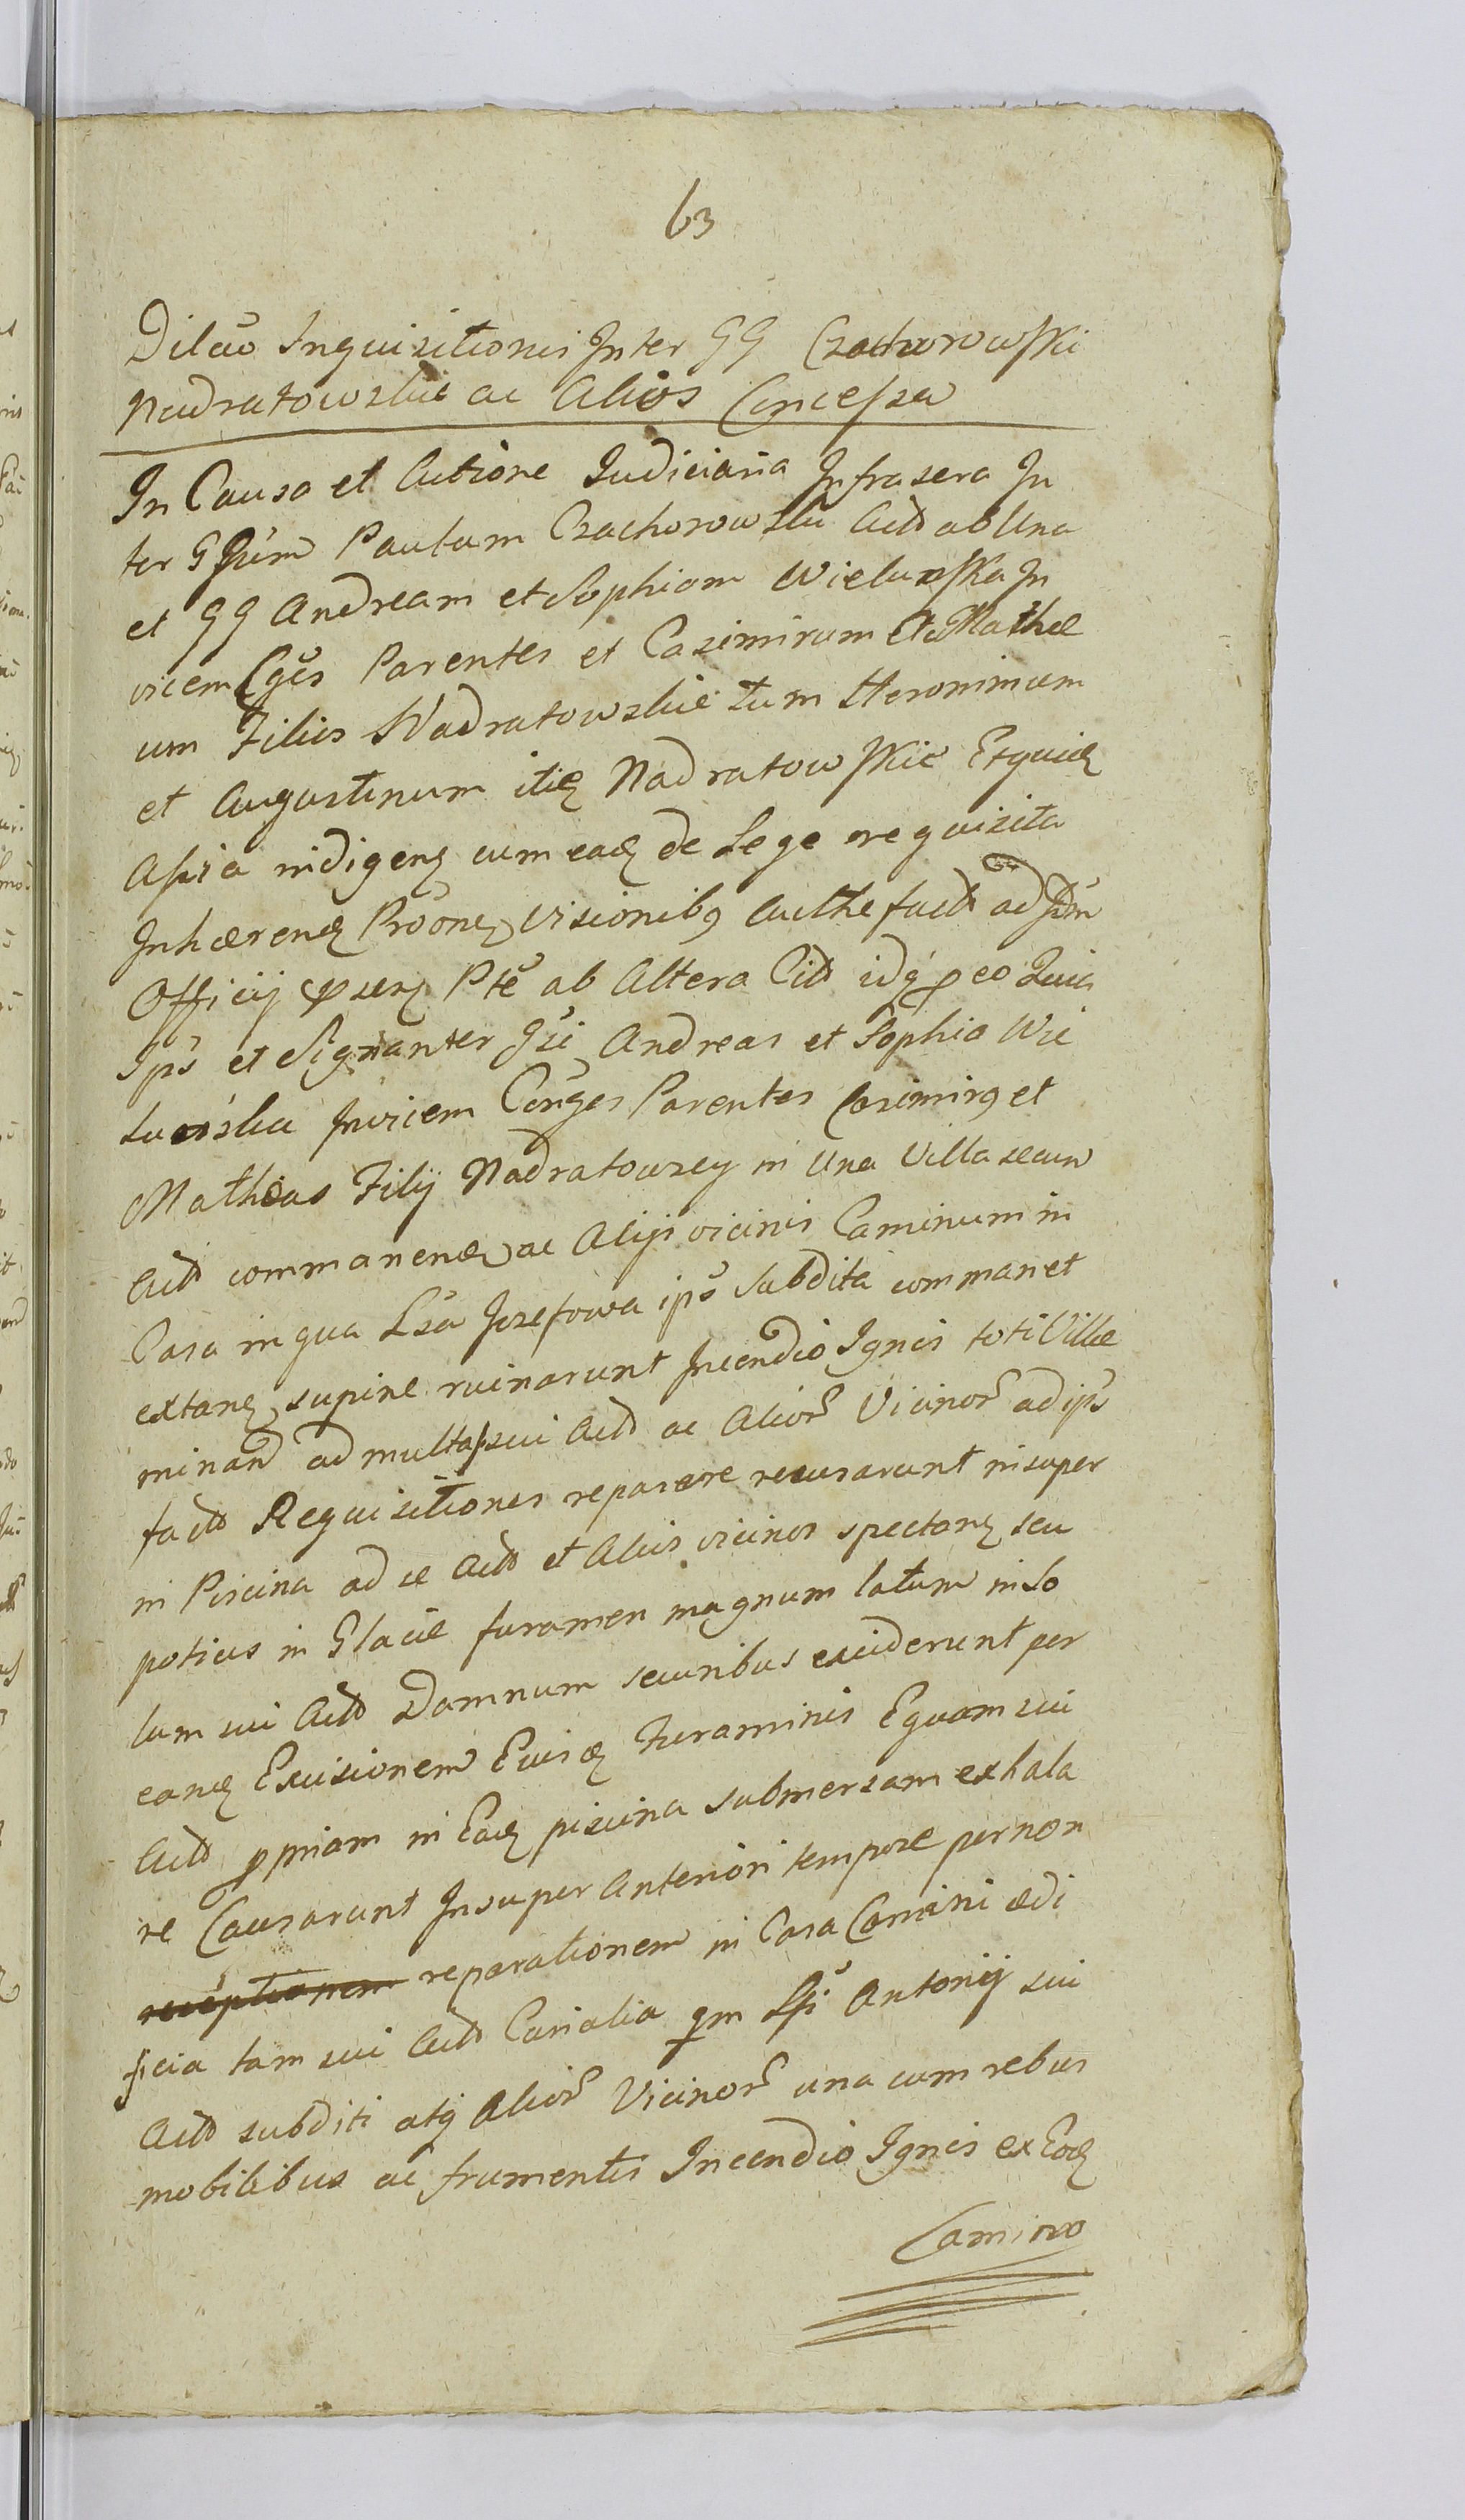 63
Dilaõ Inquisitionis Inter GG Czachorowski
Nadratowskie ac Alios Concessa
In Causa et Actione Judiciaria Infrasera In
ter Gsum Paulum Czachorowski Actt ab Una
et GG Andream et Sophiam Wielunska In
vicem Cges Parentes et Casimirum et Mathe
um Filios Nadratowskie tum Heronimum
et Augustinum itiq Nadratowskie Exquiq
Assia indigenq cum eadq de Lege requisita
Inhærenq Prõonq Visionibq Authe factt ad
Officij Ptẽ ab Altera Citt idq eo Quia
Ips et Signanter Gsi Andreas et Sophia Wie
lunska Invicem Conges Parentes Casimirq et
Matheus Filij Nadratowscy in Una Villa secum
Actt commanenq ac Alijs vicinis Caminum in
Casa in qua Lsa Jozefowa ips Subdita commanet
extanq supine ruinarunt Incendio Ignis toti Villæ
minan ad multas sui Actt ac Alior Vicinor ad ips
factt Requisitiones reparare recusarunt insuper
in Piscina ad se Actt et Alios vicinos spectanq seu
potius in Glacie furamen magnum latum in So
lum sui Actt Damnum securibus exciderunt per
eamq Excisionem Eiusq Furaminis Equam sui
Actt ppriam in Eadq piscina submersam exhala
re Causarunt Insuper Anteriori tempore per non
receptionem reparationem in Casa Camini ædi
ficia tam sui Actt Carialia qm Lsi Antonij sui
Actt subditi atq Alior Vicinor una cum rebus
mobilibus ac frumentis Incendio Ignis ex Eodq
Camino